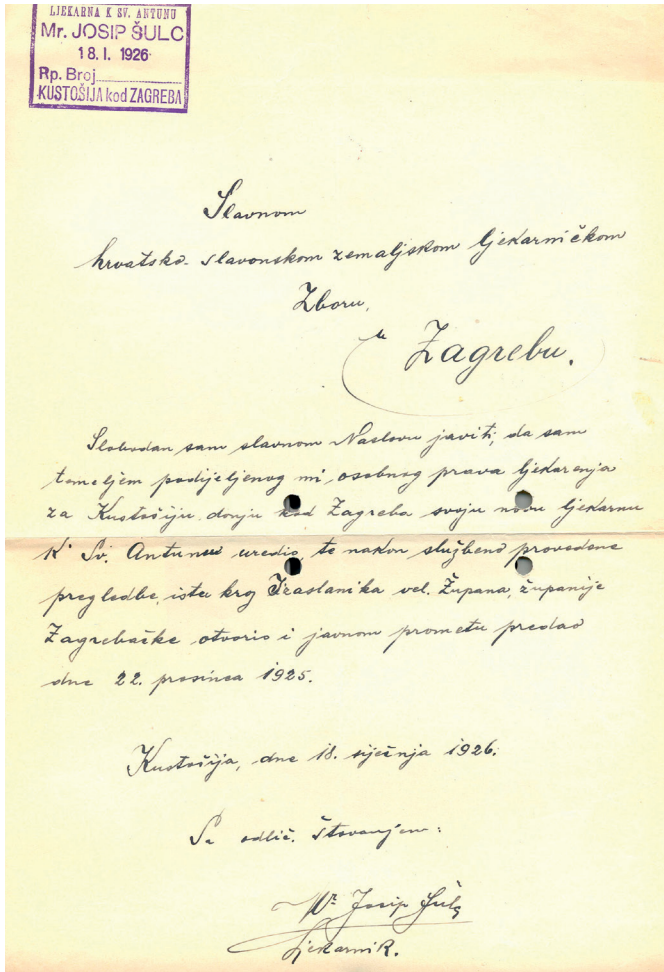 LJEKARNA K SV. ANTUNU
Mr. JOSIP ŠULC
18. I. 1926
Rp. Broj
KUSTOŠIJA kod ZAGREBA
Slavnom
hrvatsko-slavonskom zemaljskom ljekarničkom
Zboru,
u Zagrebu.
Slobodan sam slavnom Naslovu javiti, da sam
temeljem podijeljenog mi, osobnog prava ljekarenja
za Kustošiju donju kod Zagreba svoju novu ljekarnu
K Sv. Antunu uredio, te nakon službeno provedene
pregledbe, istu kroz Izaslanika vel. Župana, županije
Zagrebačke otvorio i javnom prometu predao
dne 22. prosinca 1925.
Kustošija, dne 18. siječnja 1926.
Sa odlič. štovanjem:
Mr Josip Šulc
Ljekarnik.